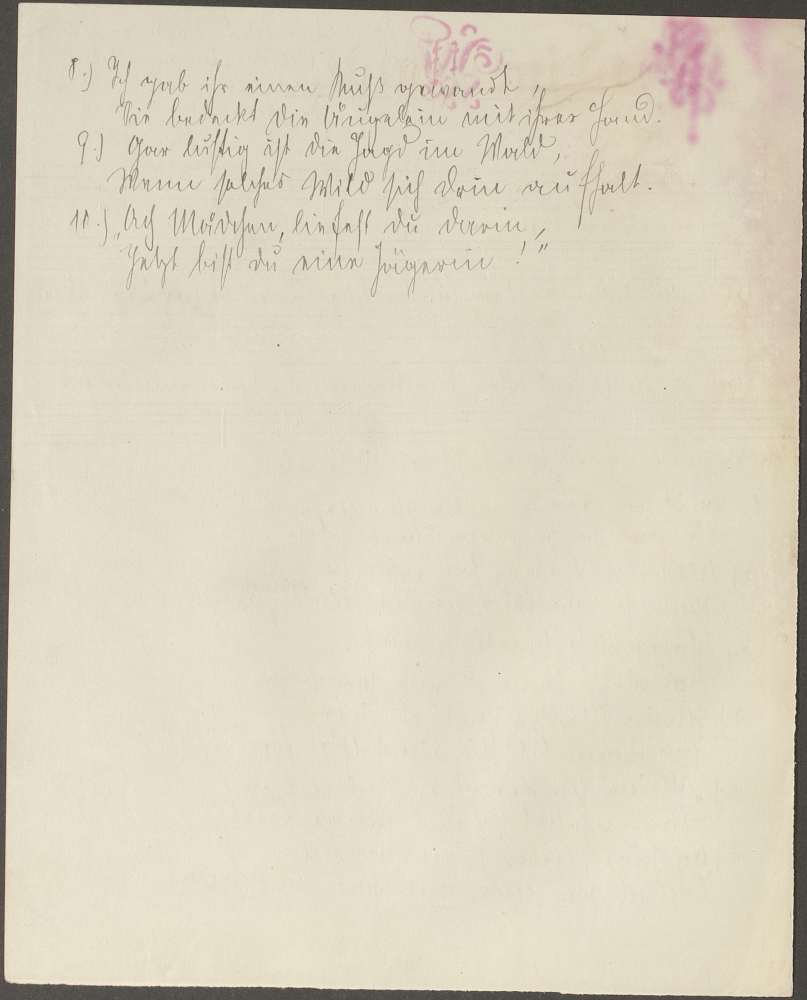 8.) Ich gab ihr einen Kuß gewandt,
Sie bedeckt die Äugelein mit ihrer Hand.
9.) Gar lustig ist die Jagd im Wald,
Wenn solches Wild sich drin aufhalt.
10.) „Ach Mädchen, liefest du darin,
Jetzt bist du eine Jägerin!"